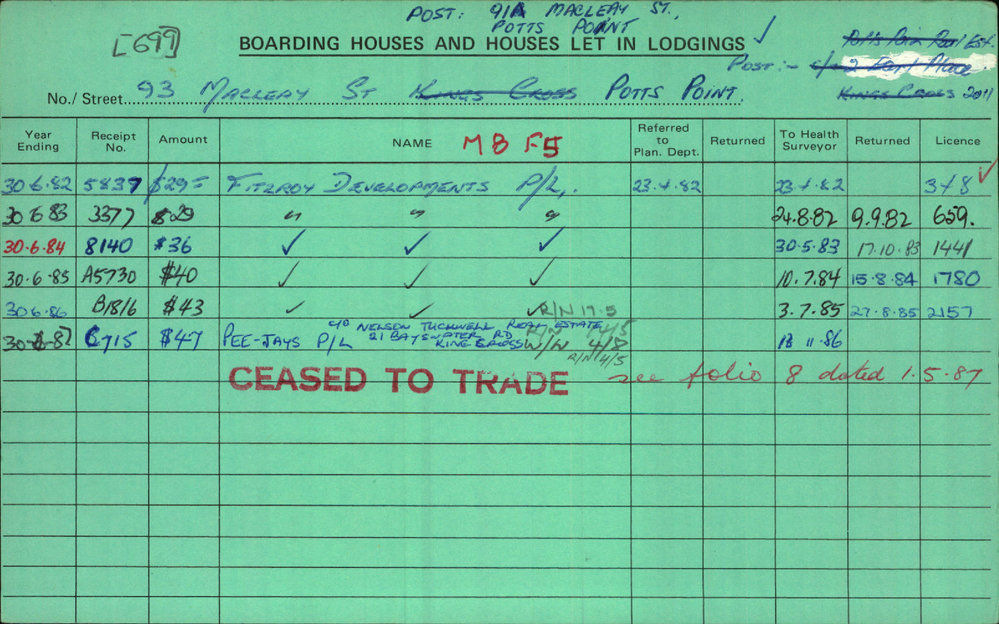 POST: 91A MACLEAY ST.,
POTTS POINT
[699]
BOARDING HOUSES AND HOUSES LET IN LODGINGS
POST:- c/- 2 Earl Place
KINGS CROSS 2011
No./ Street 93 MACLEAY ST KINGS CROSS POTTS POINT.
Year Ending Receipt No. Amount NAME M 8 F5 Referred to Plan. Dept. Returned To Health Surveyor Returned Licence
30.6.82 5837 $29= FITZROY DEVELOPMENTS P/L,. 23.4.82 23.4.82 378 ✓
30.6.83 3377 $29 " " " 24.8.82 9.9.82 659.
30.6.84 8140 $36 ✓ ✓ ✓ 30.5.83 17.10.83 1441
30.6.85 A5730 $40 ✓ ✓ ✓ 10.7.84 15.8.84 1780
30.6.86 B1816 $43 ✓ ✓ ✓ R/N 17.5 3.7.85 27.8.85 2157
30.6.87 C715 $47 PEE-JAYS P/L c/o NELSON TUCKWELL REAL ESTATE 18 11.86
21 BAYSWATER RD
KINGS CROSS W/N 4/8
R/N 4/5
CEASED TO TRADE see folio 8 dated 1.5.87